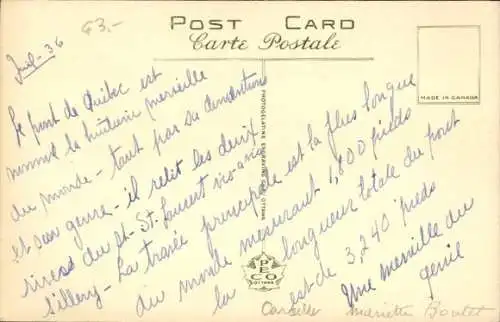 Juil-36
63.-
POST CARD
Carte Postale
MADE IN CANADA
PHOTOGELATINE ENGRAVING CO. LTD. OTTAWA
PECO
OTTAWA
Le pont de Québec est
nommé la huitième merveille
du monde - tant par sa dimention
et son genre - il relit les deux
rives du St-Laurent vis-a-vis
Sillery - La travée principale est la plus longue
du monde mesurant 1,800 pieds
la longueur totale du pont
est de 3,240 pieds
Une merveille du
génie
Mariette Boutet